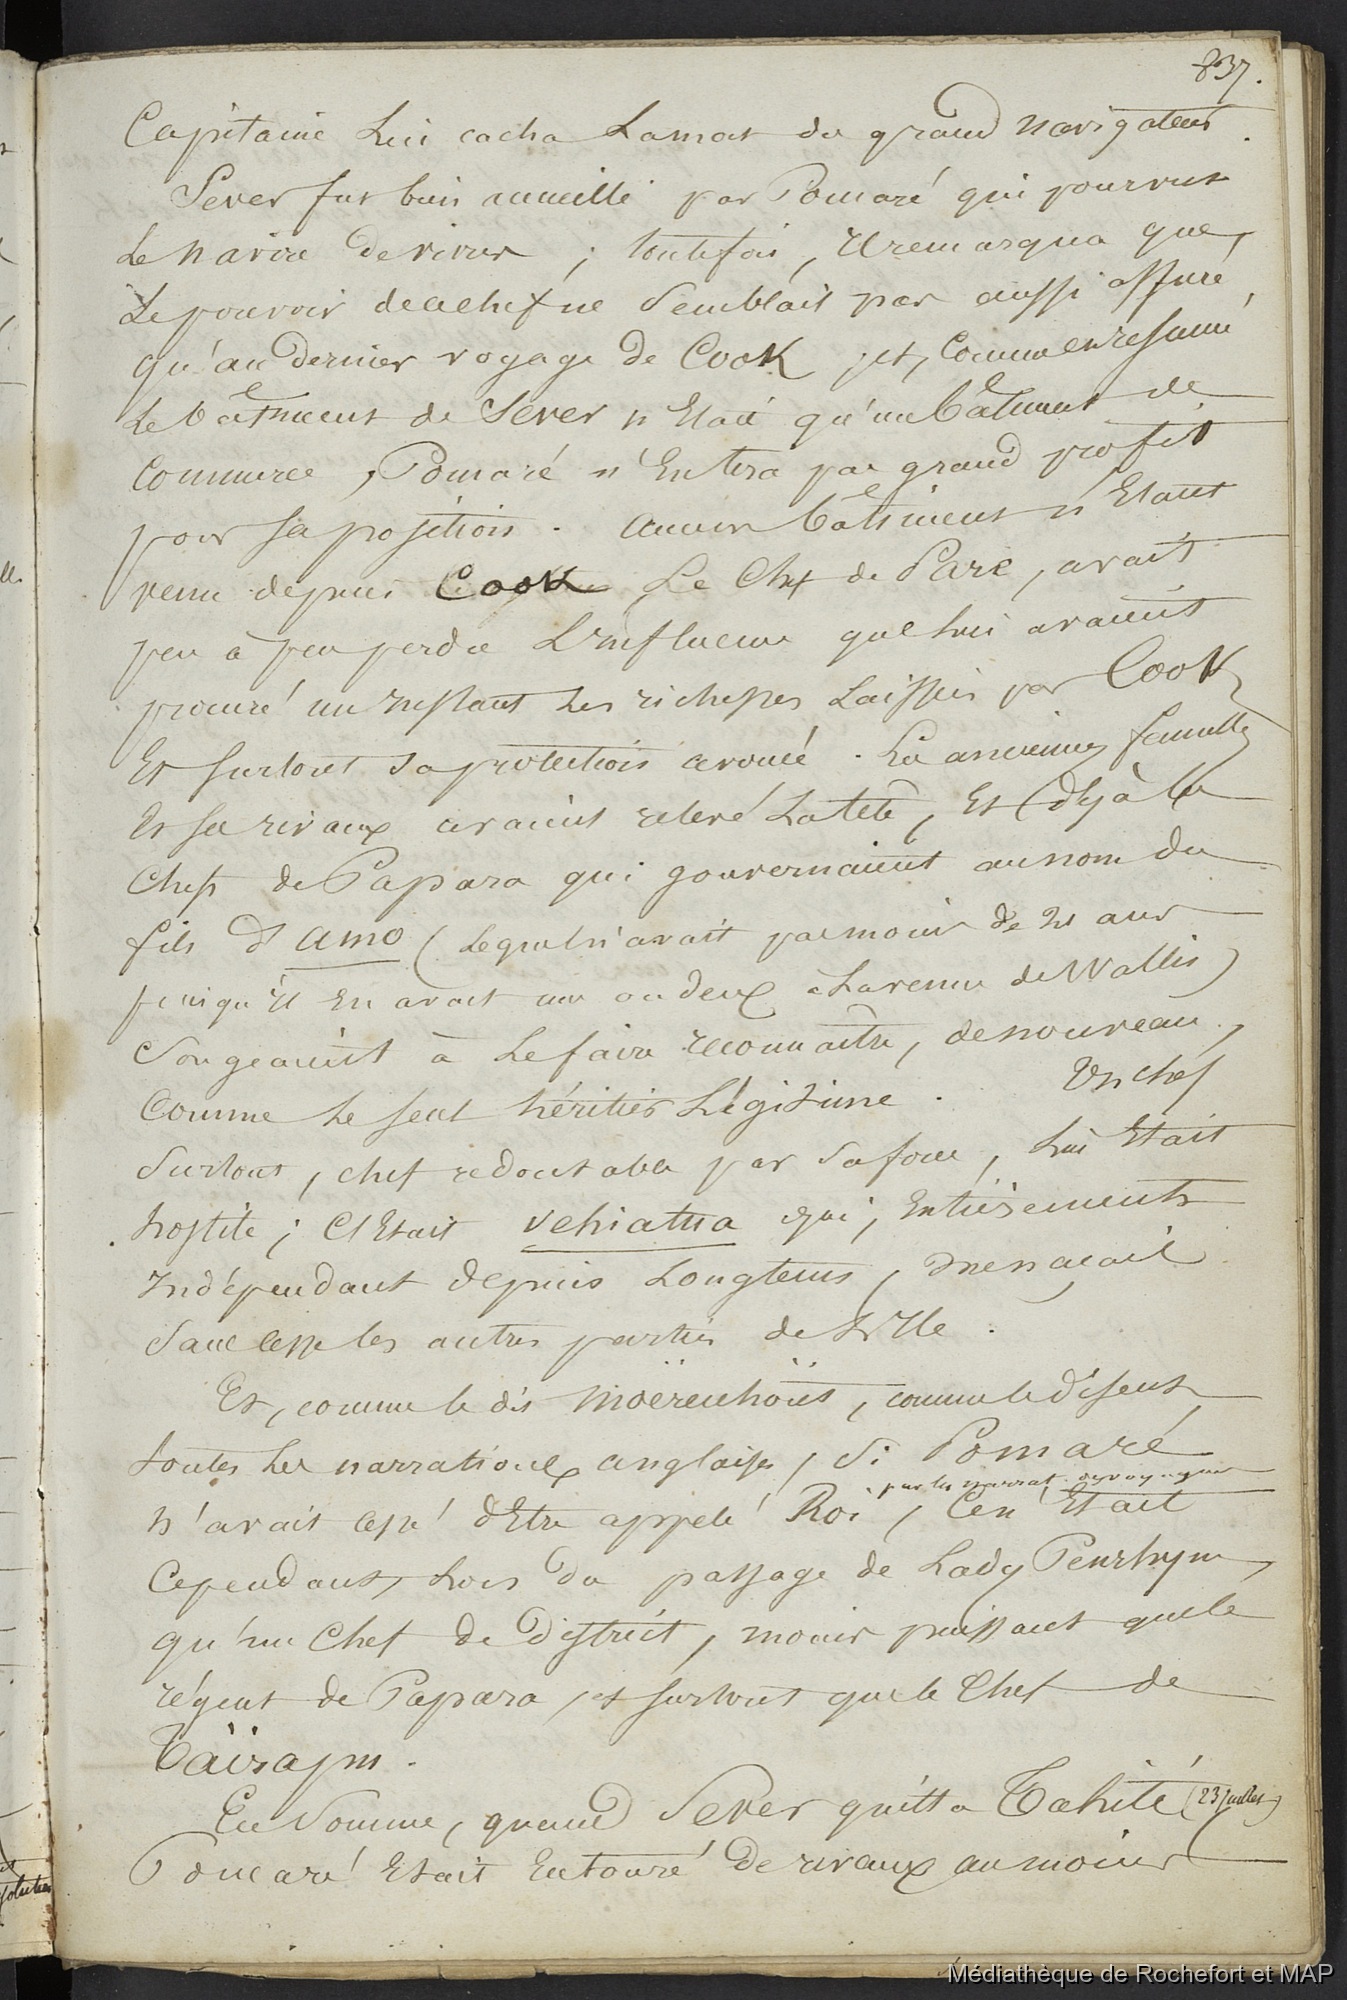 837.
Capitaine lui cacha la mort du grand navigateur.
Sever fut bien accueilli par Pomaré qui pourvut
le navire de vivres ; toutefois, il remarqua que,
le pouvoir de ce chef ne semblait pas aussi assuré,
qu'au dernier voyage de Cook ; et, comme en résumé
le bâtiment de Sever n'était qu'un bâtiment de
commerce, Pomaré n'en tira pas grand profit
pour sa position. Aucun bâtiment n'étant
venu depuis Cook, le Chef de Pare, avait
peu à peu perdu l'influence que lui avaient
procuré un instant les richesses laissées par Cook,
et surtout sa protection avouée. Les anciennes familles
et ses rivaux avaient relevé la tête, et déjà les
chefs de Papara qui gouvernaient au nom du
fils d'Amo (lequel n'avait pas moins de 21 ans
puisqu'il en avait un ou deux à la venue de Wallis)
songeaient à le faire reconnaître, de nouveau,
comme le seul héritier légitime. Un chef
surtout, chef redoutable par sa force, lui était
hostile ; c'était Vehiatua qui, entièrement
indépendant depuis longtems, menaçait
sans cesse les autres parties de l'Ile.
Et, comme le dit Moërenhoüt, comme le disent
toutes les narrations anglaises, si Pomaré
par les narrat. voyageurs
n'avait cessé d'être appelé Roi, ce n'était
cependant, lors du passage de Lady Penrhyn,
qu'un Chef de district, moins puissant que le
régent de Papara, et surtout que le Chef de
Taïrapu.
En somme, quand Sever quitta Tahité (23 juillet)
Pomaré était entouré de rivaux au moins
Médiathèque de Rochefort et MAP